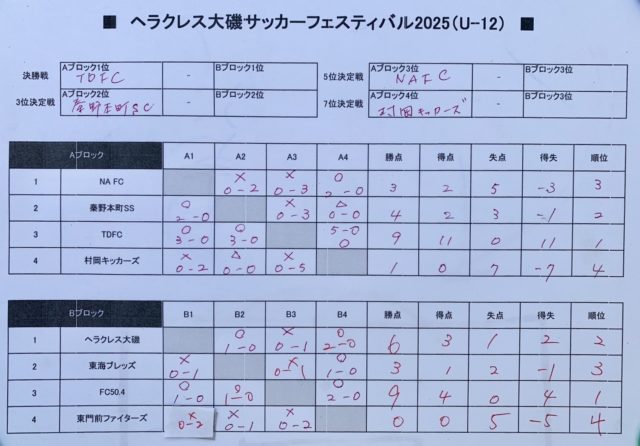 ■ ヘラクレス大磯サッカーフェスティバル2025（U-12） ■
決勝戦 Aブロック1位 TDFC - Bブロック1位 5位決定戦 Aブロック3位 NAFC - Bブロック3位
3位決定戦 Aブロック2位 秦野本町SC - Bブロック2位 7位決定戦 Aブロック4位 村岡キッカーズ - Bブロック3位
Aブロック A1 A2 A3 A4 勝点 得点 失点 得失 順位
1 NA FC × 0-2 × 0-3 ○ 2-0 3 2 5 -3 3
2 秦野本町SS ○ 2-0 × 0-3 △ 0-0 4 2 3 -1 2
3 TDFC ○ 3-0 ○ 3-0 5-0 ○ 9 11 0 11 1
4 村岡キッカーズ × 0-2 △ 0-0 × 0-5 1 0 7 -7 4
Bブロック B1 B2 B3 B4 勝点 得点 失点 得失 順位
1 ヘラクレス大磯 ○ 1-0 × 0-1 ○ 2-0 6 3 1 2 2
2 東海ブレッズ × 0-1 × 0-1 ○ 1-0 3 1 2 -1 3
3 FC50.4 ○ 1-0 ○ 1-0 ○ 2-0 9 4 0 4 1
4 東門前ファイターズ × 0-2 × 0-1 × 0-2 0 0 5 -5 4